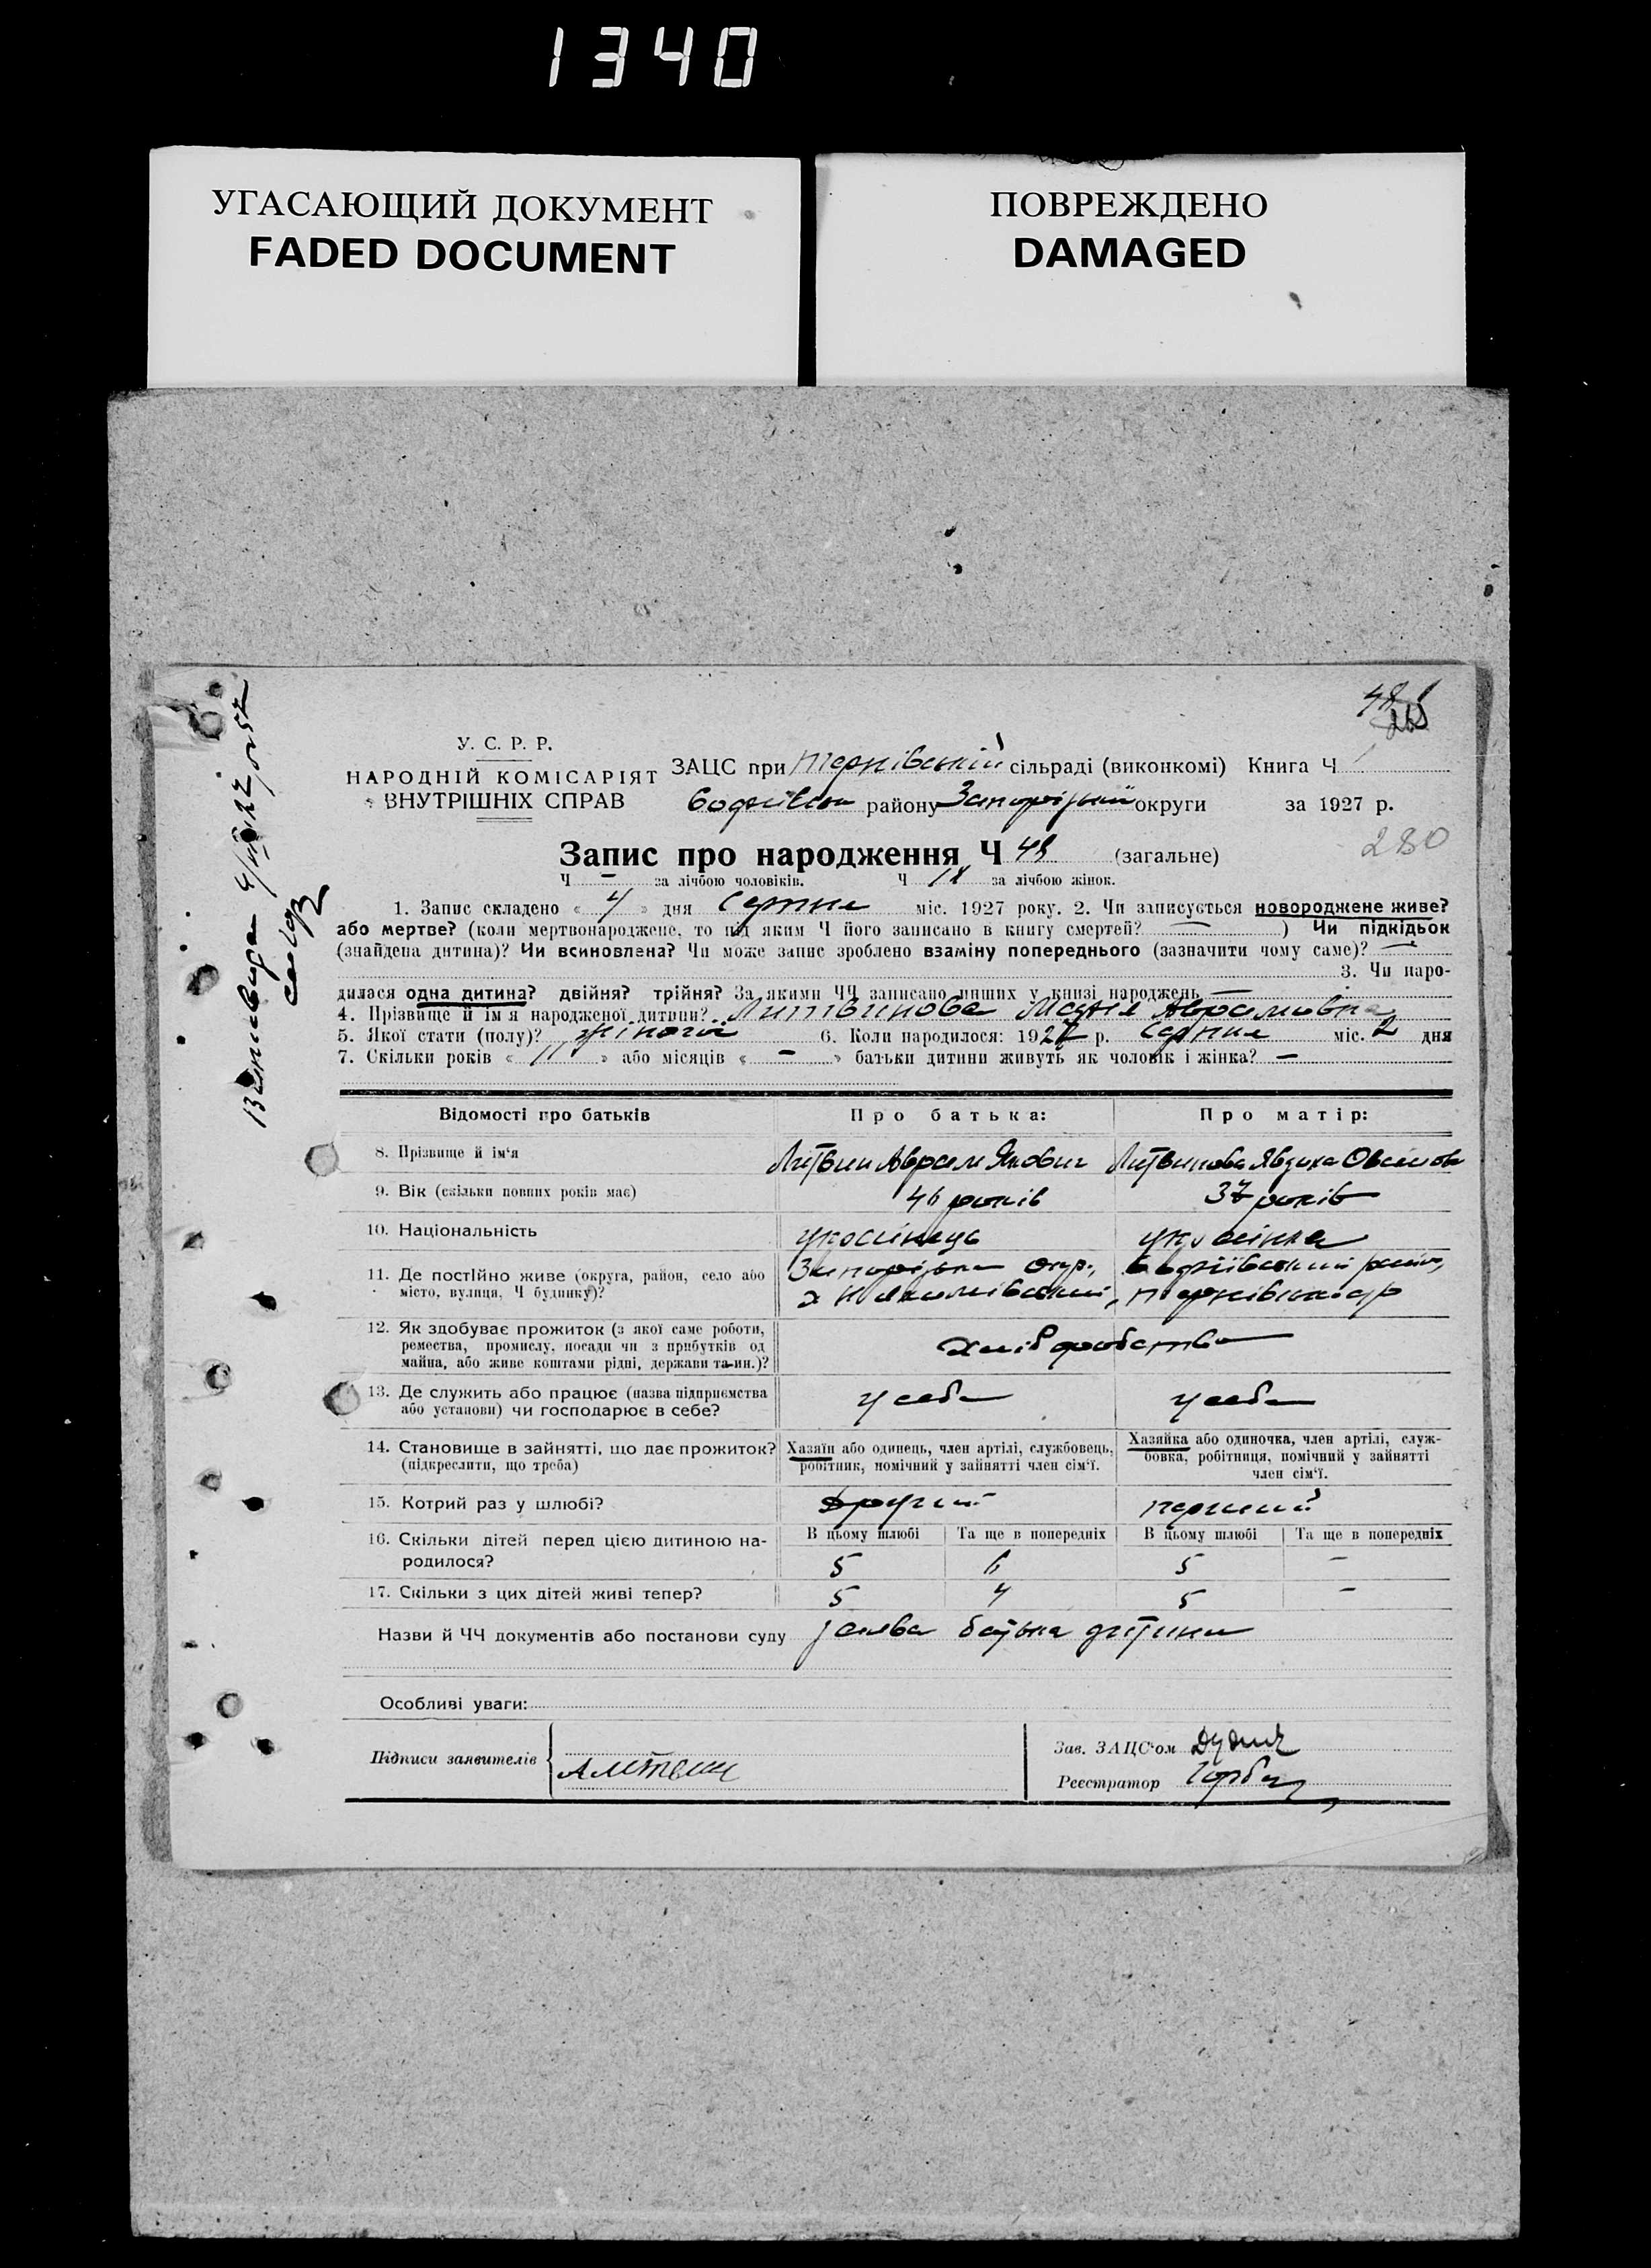 1340
УГАСАЮЩИЙ ДОКУМЕНТ
FADED DOCUMENT
ПОВРЕЖДЕНО
DAMAGED
48
У. С. Р. Р.
НАРОДНІЙ КОМІСАРІЯТ
ВНУТРІШНІХ СПРАВ
ЗАЦС при Тернівській сільраді (виконкомі) Книга Ч
району Запорізької округи за 1927 р.
280
Запис про народження Ч 48 (загальне)
Ч — за лічбою чоловіків. Ч за лічбою жінок.
1. Запис складено « 4 » дня Серпня міс. 1927 року. 2. Чи записується новороджене живе?
або мертве? (коли мертвонароджене, то під яким Ч його записано в книгу смертей? — ) Чи підкідьок
(знайдена дитина)? Чи всиновлена? Чи може запис зроблено взаміну попереднього (зазначити чому саме)? —
3. Чи наро-
дилася одна дитина? двійня? трійня? За якими ЧЧ записано инших у книзі народжень —
4. Прізвище й ім'я народженої дитини? Литвинова Аврамовна
5. Якої стати (полу)? жіночої 6. Коли народилося: 1927 р. серпня міс. 2 дня
7. Скільки років « 11 » або місяців « — » батьки дитини живуть як чоловік і жінка? —
Відомості про батьків Про батька: Про матір:
8. Прізвище й ім'я Литвин Аврам Якович Литвинова Явдоха
9. Вік (скільки повних років має) 46 років 37 років
10. Національність українець українка
11. Де постійно живе (округа, район, село або
місто, вулиця, Ч будинку)? Запорізька окр.,
12. Як здобуває прожиток (з якої саме роботи,
ремества, промислу, посади чи з прибутків од
майна, або живе коштами рідні, держави та ин.)? хліборобство
13. Де служить або працює (назва підприємства
або установи) чи господарює в себе? у себе у себе
14. Становище в зайнятті, що дає прожиток?
(підкреслити, що треба)
Хазяїн або одинець, член артілі, службовець,
робітник, помічний у зайнятті член сім'ї.
Хазяйка або одиночка, член артілі, служ-
бовка, робітниця, помічний у зайнятті
член сім'ї.
15. Котрий раз у шлюбі? другий перший
В цьому шлюбі Та ще в попередніх В цьому шлюбі Та ще в попередніх
16. Скільки дітей перед цією дитиною на-
родилося? 5 6 5 —
17. Скільки з цих дітей живі тепер? 5 4 5 —
Назви й ЧЧ документів або постанови суду заява батька дитини
Особливі уваги:
Підписи заявителів АЛитвин
Зав. ЗАЦС'ом Дудник
Реєстратор